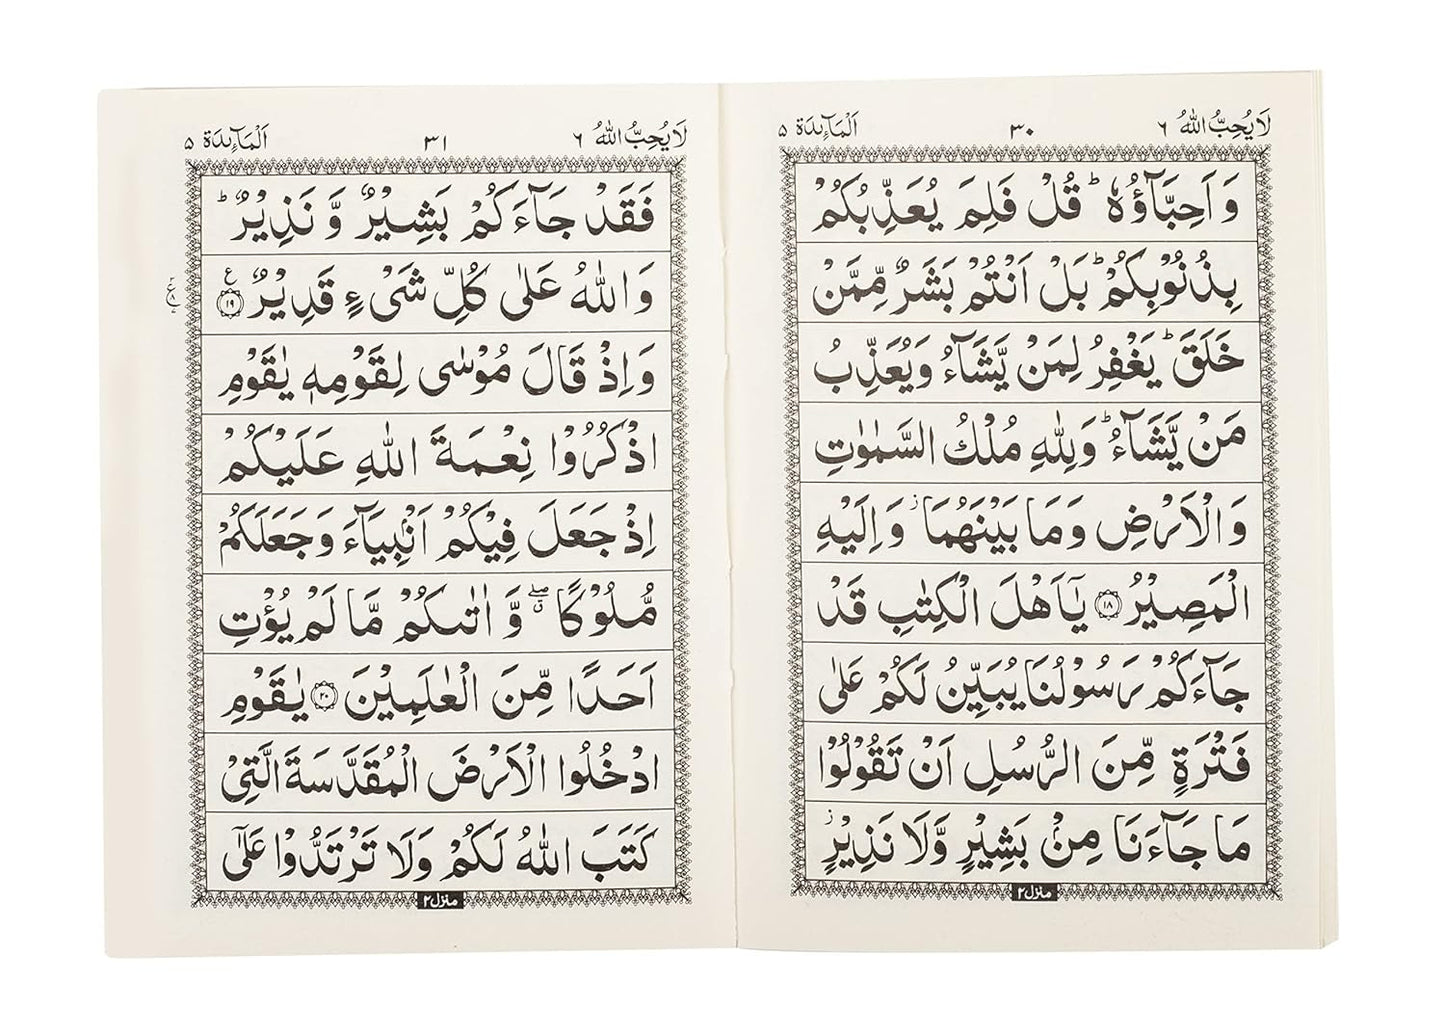 لَا يُحِبُّ اللّٰهُ ٦
٣٠
اَلْمَآىِٕدَة ٥
وَ اَحِبَّآؤُهٗ ؕ قُلْ فَلِمَ یُعَذِّبُكُمْ
بِذُنُوْبِكُمْ ؕ بَلْ اَنْتُمْ بَشَرٌ مِّمَّنْ
خَلَقَ ؕ یَغْفِرُ لِمَنْ یَّشَآءُ وَیُعَذِّبُ
مَنْ یَّشَآءُ ؕ وَلِلّٰهِ مُلْكُ السَّمٰوٰتِ
وَ الْاَرْضِ وَ مَا بَیْنَهُمَا ؗ وَ اِلَیْهِ
الْمَصِیْرُ ﴿١٨﴾ یٰۤاَهْلَ الْكِتٰبِ قَدْ
جَآءَكُمْ رَسُوْلُنَا یُبَیِّنُ لَكُمْ عَلٰی
فَتْرَةٍ مِّنَ الرُّسُلِ اَنْ تَقُوْلُوْا
مَا جَآءَنَا مِنْۢ بَشِیْرٍ وَّلَا نَذِیْرٍ ؗ
منزل ٢
لَا يُحِبُّ اللّٰهُ ٦
٣١
اَلْمَآىِٕدَة ٥
فَقَدْ جَآءَكُمْ بَشِیْرٌ وَّ نَذِیْرٌ ؕ
وَ اللّٰهُ عَلٰی كُلِّ شَیْءٍ قَدِیْرٌ ﴿١٩﴾ ع
وَ اِذْ قَالَ مُوْسٰی لِقَوْمِهٖ یٰقَوْمِ
اذْكُرُوْا نِعْمَةَ اللّٰهِ عَلَیْكُمْ
اِذْ جَعَلَ فِیْكُمْ اَنْۢبِیَآءَ وَ جَعَلَكُمْ
مُّلُوْكًا ۖۗ وَّ اٰتٰىكُمْ مَّا لَمْ یُؤْتِ
اَحَدًا مِّنَ الْعٰلَمِیْنَ ﴿٢٠﴾ یٰقَوْمِ
ادْخُلُوا الْاَرْضَ الْمُقَدَّسَةَ الَّتِیْ
كَتَبَ اللّٰهُ لَكُمْ وَلَا تَرْتَدُّوْا عَلٰۤی
منزل ٢